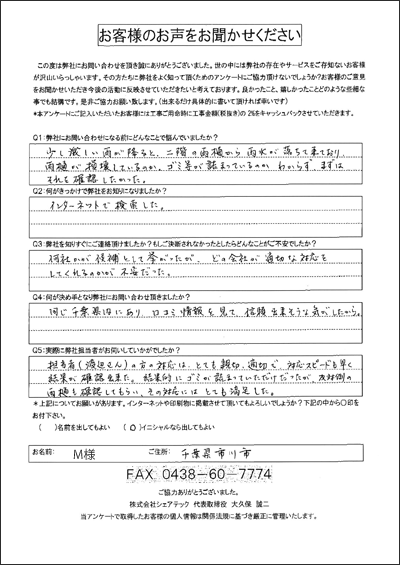 お客様のお声をお聞かせください
この度は弊社にお問い合わせを頂き誠にありがとうございました。世の中には弊社の存在やサービスをご存知ないお客様
が沢山いらっしゃいます。その方たちに弊社をよく知って頂くためのアンケートにご協力頂けないでしょうか?お客様のご意見
をお聞かせいただき今後の活動に反映させていただきたいと考えております。良かったこと、嬉しかったことなどどのような些細な
事でも結構です。是非ご協力お願い致します。(出来るだけ具体的に書いて頂ければ幸いです)
*本アンケートにご記入いただいたお客様には工事ご用命時に工事金額(税抜き)の2%をキャッシュバックさせていただきます。
Q1:弊社にお問い合わせになる前にどんなことで悩んでいましたか?
少し激しい雨が降ると、二階の雨樋から雨水が落ちて来ており
雨樋が損壊しているのか、ゴミ等が詰まっているのか わからず、まずは
それを確認したかった。
Q2:何がきっかけで弊社をお知りになりましたか?
インターネットで検索した。
Q3:弊社を知りすぐにご連絡頂けましたか?もしご決断されなかったとしたらどんなことがご不安でしたか?
何社かが候補として挙がったが、どの会社が適切な対応を
してくれるのかが不安だった。
Q4:何が決め手となり弊社にお問い合わせ頂きましたか?
同じ千葉県内にあり、口コミ情報を見て、信頼出来そうな気がしたから。
Q5:実際に弊社担当者がお伺いしていかがでしたか?
担当者(渡辺さん)の方の対応は、とても親切、適切で、対応スピードも早く
結果が確認出来た。結果的にゴミが詰まっていただけだったが、反対側の
雨樋も確認してもらい、その対応にはとても満足した。
*上記についてお願いがあります。インターネットや印刷物に掲載させて頂いてもよろしいでしょうか?下記の中から〇印を
お付け下さい。
( )名前を出してもよい (○)イニシャルなら出してもよい
お名前: M様 ご住所: 千葉県市川市
FAX 0438-60-7774
ご協力ありがとうございました。
株式会社シェアテック 代表取締役 大久保 誠二
当アンケートで取得したお客様の個人情報は関係法規に基づき厳正に管理いたします。